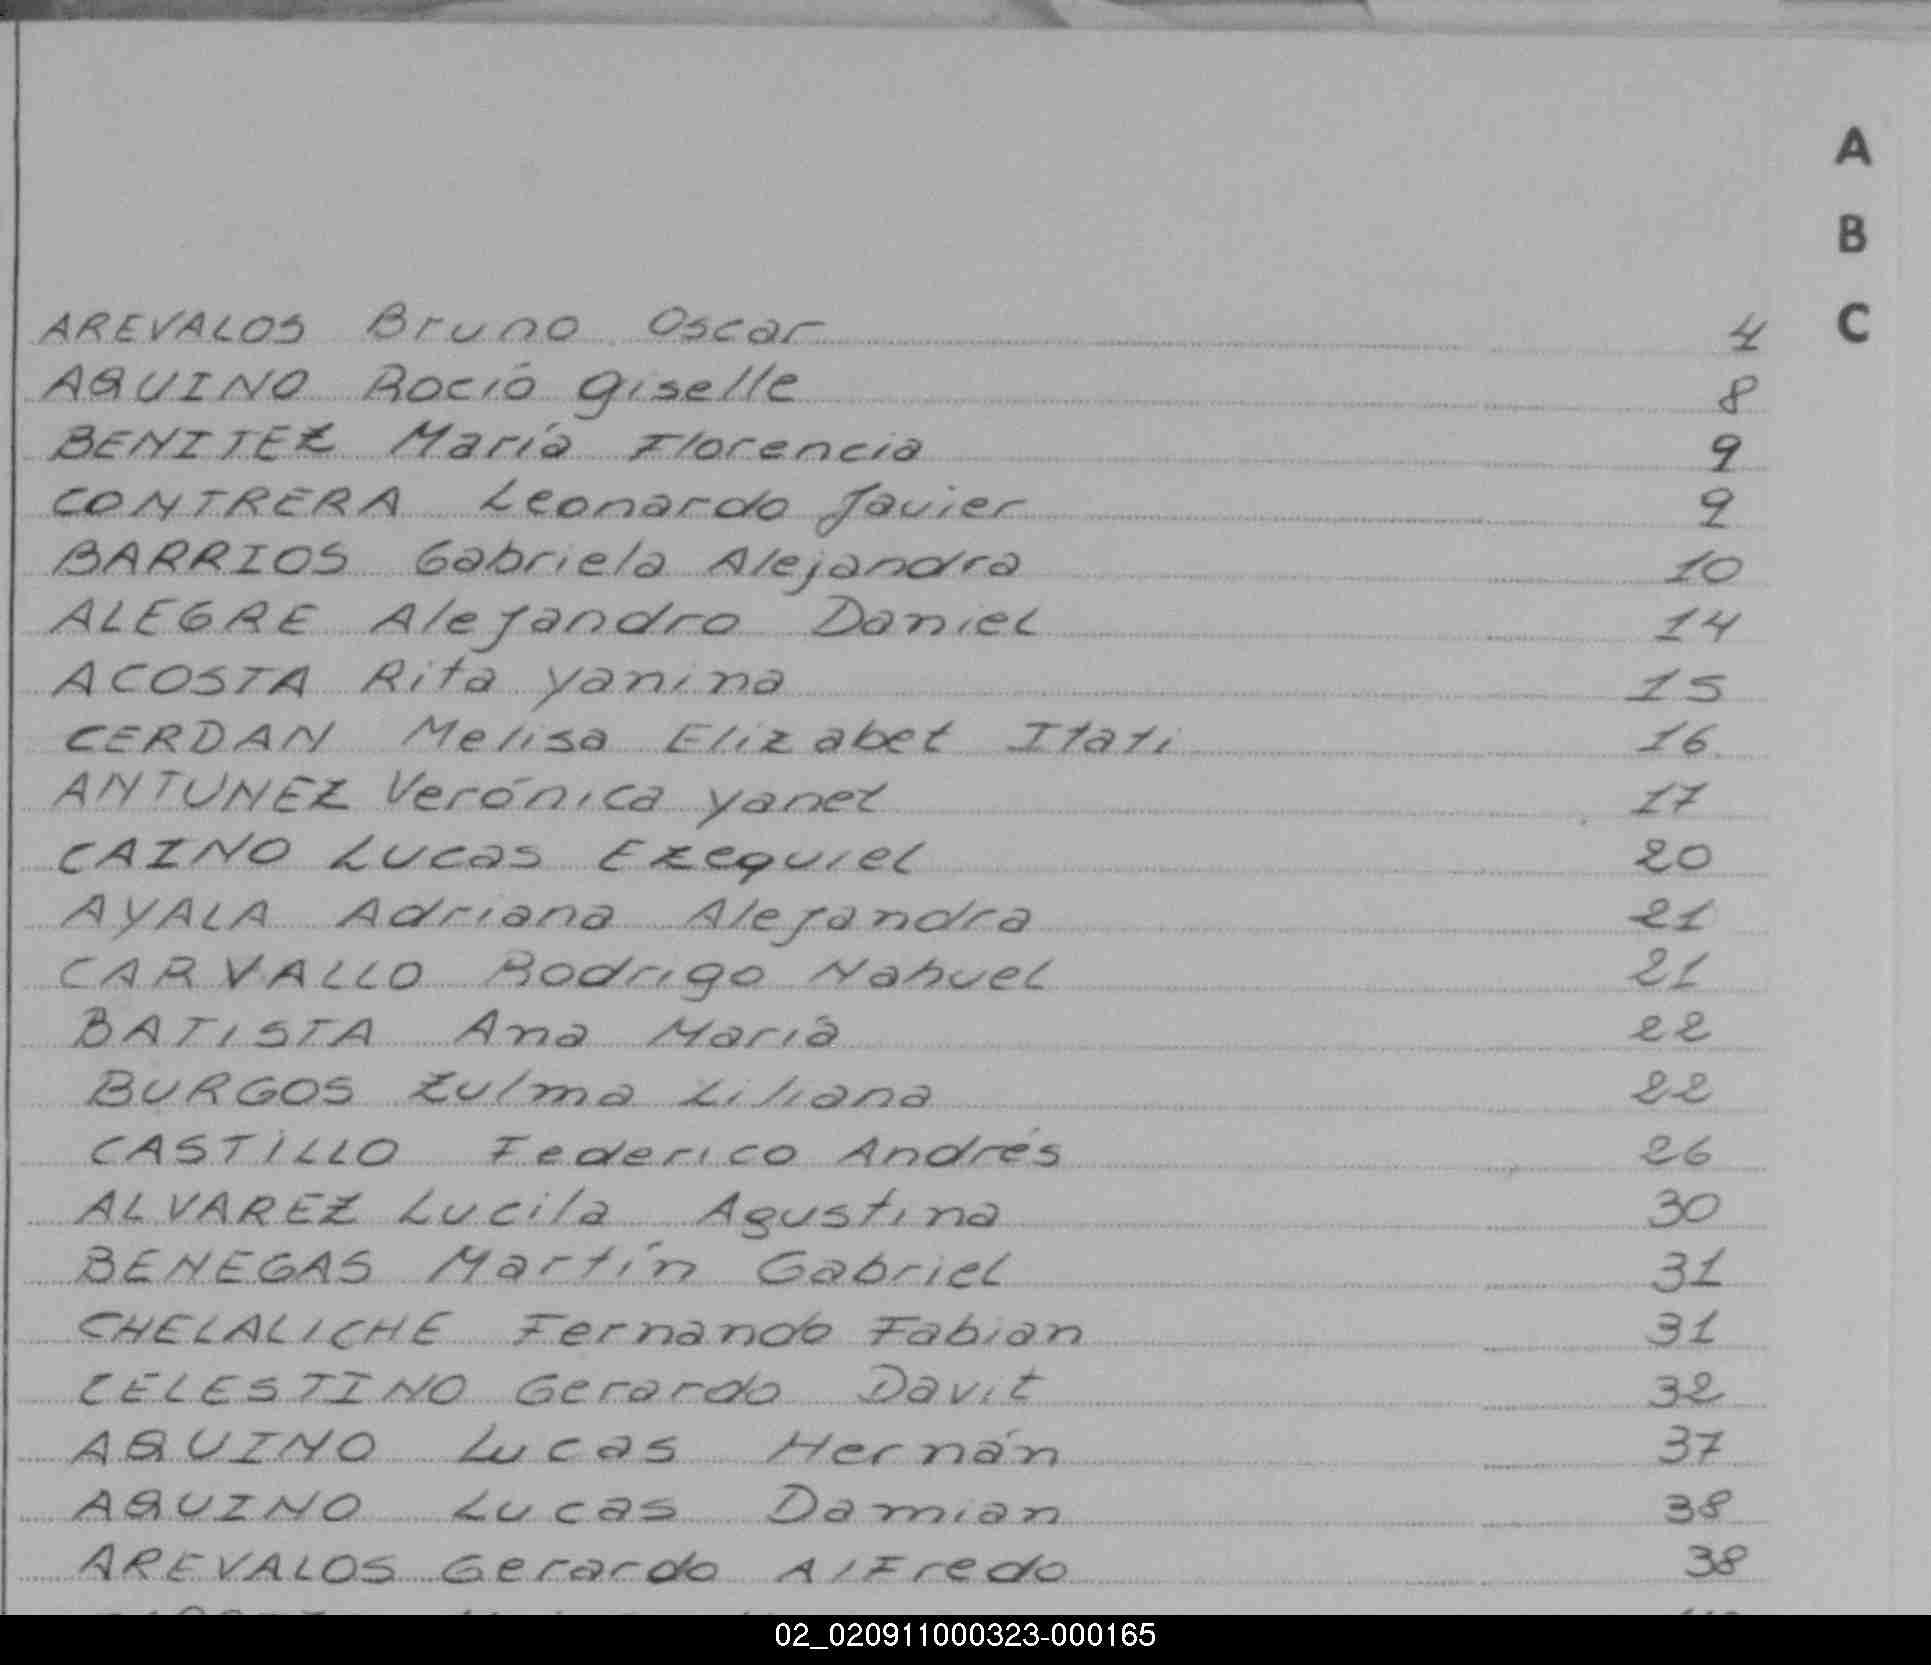 A
B
C
AREVALOS Bruno Oscar 4
AQUINO Rocío Giselle 8
BENITEZ María Florencia 9
CONTRERA Leonardo Javier 9
BARRIOS Gabriela Alejandra 10
ALEGRE Alejandro Daniel 14
ACOSTA Rita Yanina 15
CERDAN Melisa Elizabet Itati 16
ANTUNEZ Verónica Yanet 17
CAINO Lucas Ezequiel 20
AYALA Adriana Alejandra 21
CARVALLO Rodrigo Nahuel 21
BATISTA Ana María 22
BURGOS Zulma Liliana 22
CASTILLO Federico Andrés 26
ALVAREZ Lucila Agustina 30
BENEGAS Martín Gabriel 31
CHELALICHE Fernando Fabian 31
CELESTINO Gerardo Davit 32
AQUINO Lucas Hernán 37
AQUINO Lucas Damian 38
AREVALOS Gerardo Alfredo 38
02_020911000323-000165